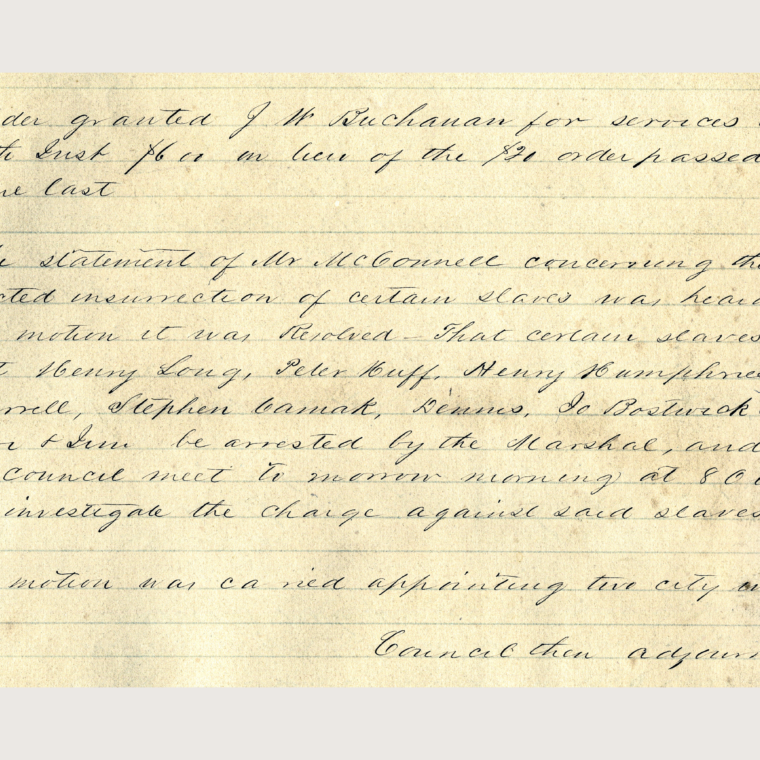 der granted J W Buchanan for services
Inst $6 00 in lieu of the $20 order passed
ne last
statement of Mr McConnell concerning the
cted insurrection of certain slaves was heard
motion it was Resolved – That certain slaves
Henry Long, Peter Huff, Henry Humphries
rrell, Stephen Camak, Dennis, Jo Bostwick
& Jim be arrested by the Marshal, and
council meet to morrow morning at 8 O
investigate the charge against said slaves
motion was ca ried appointing two city
Council then adjourn